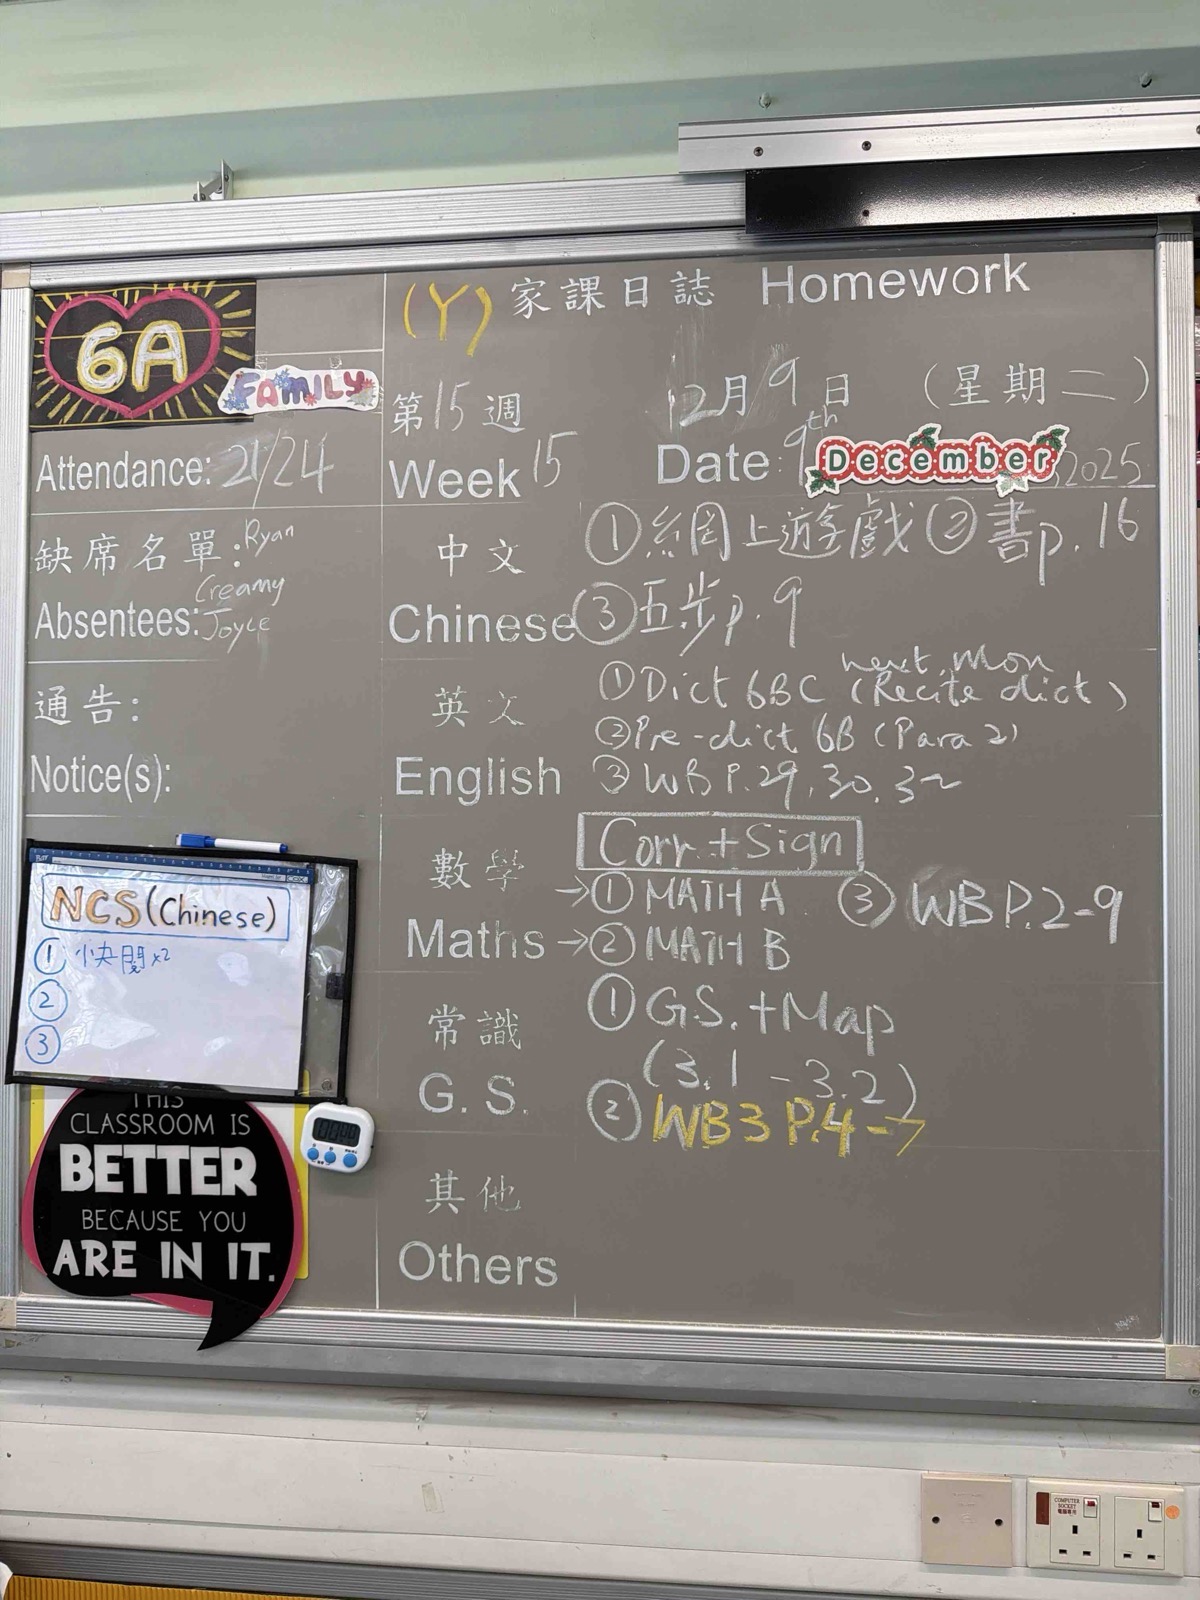 6A
FAMILY
(Y) 家課日誌 Homework
第15週 12月9日 (星期二)
Week 15 Date: 9th December, 2025
Attendance: 21/24
缺席名單: Ryan
Creamy
Absentees: Joyce
通告:
Notice(s):
中文 ① 網上遊戲 ② 書p.16
Chinese ③ 五步p.9
英文 ① Dict 6BC (Recite dict)
next Mon
② Pre-dict 6B (Para 2)
English ③ WB P.29, 30, 32
Corr + Sign
數學 → ① MATH A ③ WB P.2-9
Maths → ② MATH B
常識 ① G.S. + Map
(3.1 - 3.2)
G. S. ② WB3 P.4-7
其他
Others
NCS (Chinese)
① 快閱x2
②
③
THIS
CLASSROOM IS
BETTER
BECAUSE YOU
ARE IN IT.
COMPUTER
SOCKET
電腦專用